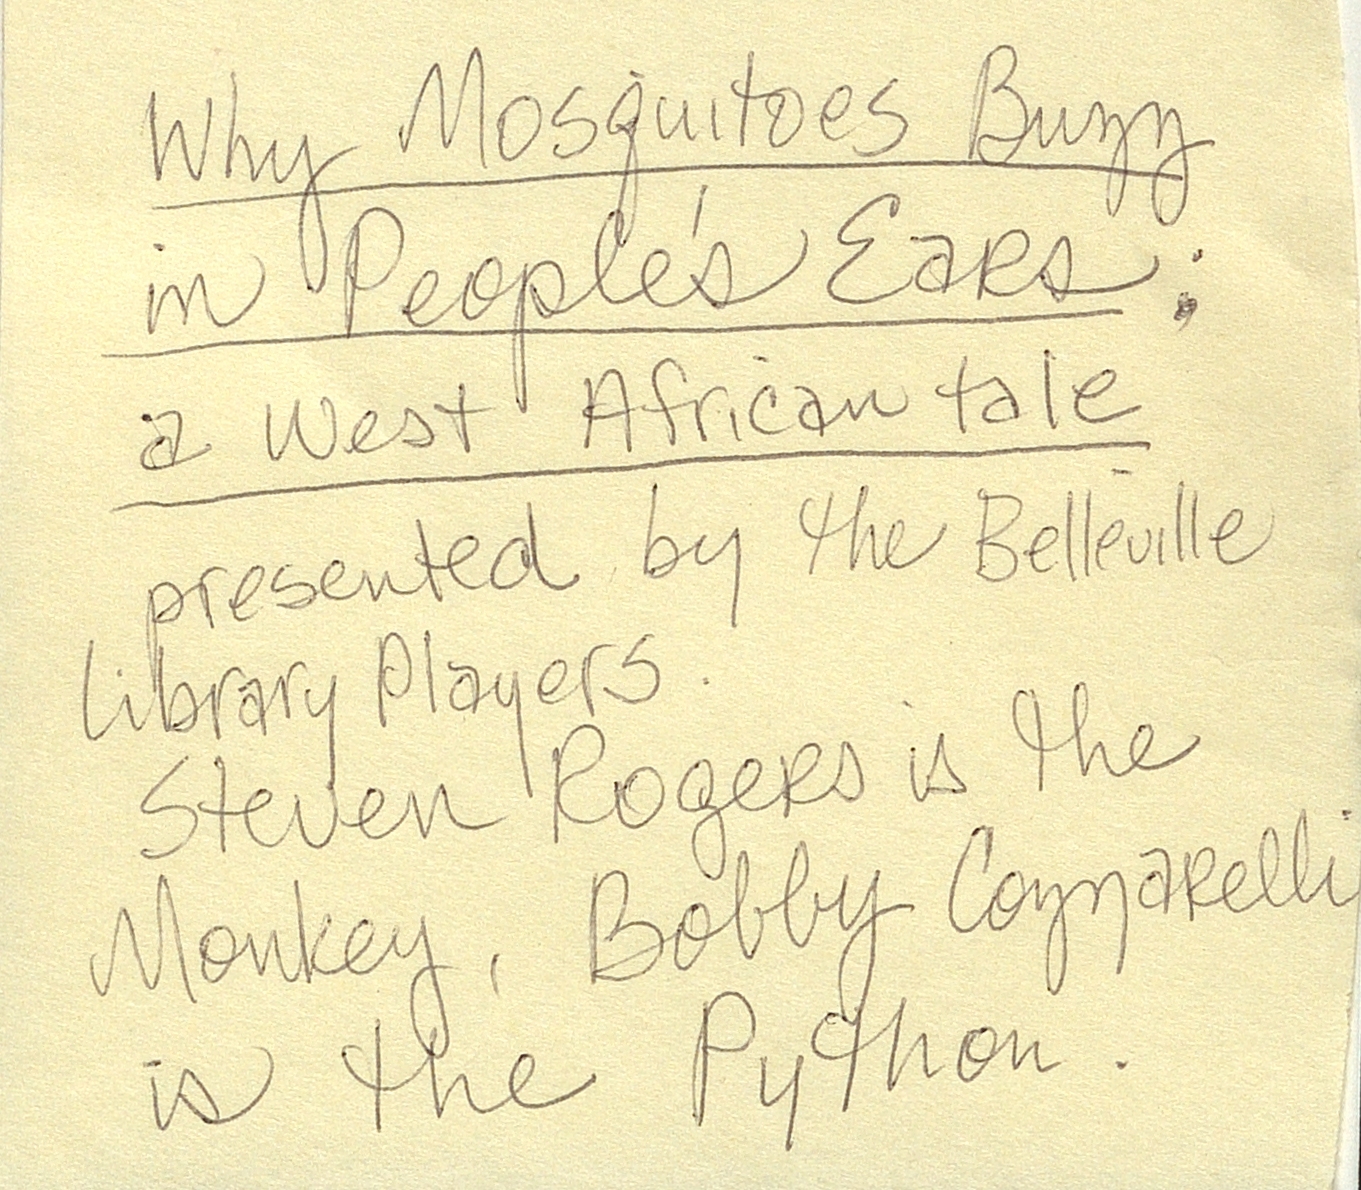 Why Mosquitoes Buzz
in People's Ears:
a West African tale
presented by the Belleville
Library Players.
Steven Rogers is the
Monkey, Bobby Cozzarelli
is the Python.